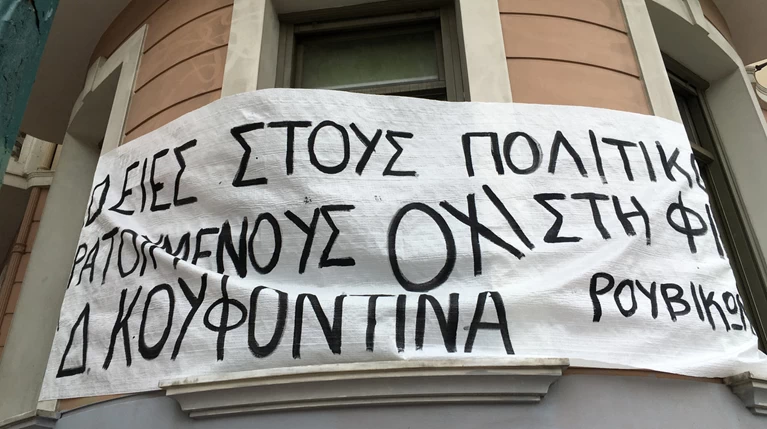 ΔΕΙΕΣ ΣΤΟΥΣ ΠΟΛΙΤΙΚΟ
ΡΑΤΟΥΜΕΝΟΥΣ ΟΧΙ ΣΤΗ ΦΙ
Δ. ΚΟΥΦΟΝΤΙΝΑ ΡΟΥΒΙΚΩΝ